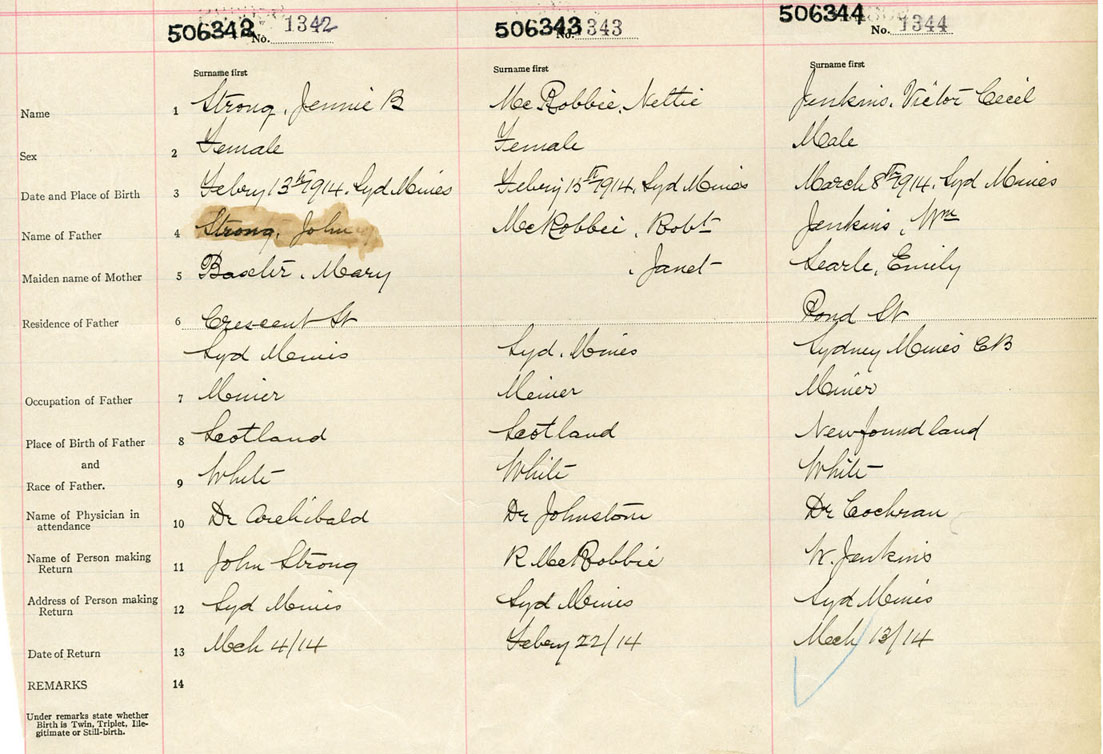 506342 No. 1342 506343 No. 1343 506344 No. 1344
Surname first Surname first Surname first
Name 1 Strong, Jennie B McRobbie, Nettie Jenkins, Victor Cecil
Sex 2 Female Female Male
Date and Place of Birth 3 Febry 13th 1914. Syd Mines Febry 15th 1914, Syd Mines March 8th 1914. Syd Mines
Name of Father 4 Strong, John McRobbie, Robt Jenkins, Wm
Maiden name of Mother 5 Baxter, Mary , Janet Searle, Emily
Residence of Father 6 Crescent St Pond St
Syd Mines Syd. Mines Sydney Mines CB
Occupation of Father 7 Miner Miner Miner
Place of Birth of Father 8 Scotland Scotland Newfoundland
and
Race of Father. 9 White White White
Name of Physician in
attendance 10 Dr Archibald Dr Johnstone Dr Cochran
Name of Person making
Return 11 John Strong R McRobbie W. Jenkins
Address of Person making
Return 12 Syd Mines Syd Mines Syd Mines
Date of Return 13 Mch 4/14 Febry 22/14 Mch 13/14
REMARKS 14
Under remarks state whether
Birth is Twin, Triplet, Ille-
gitimate or Still-birth.